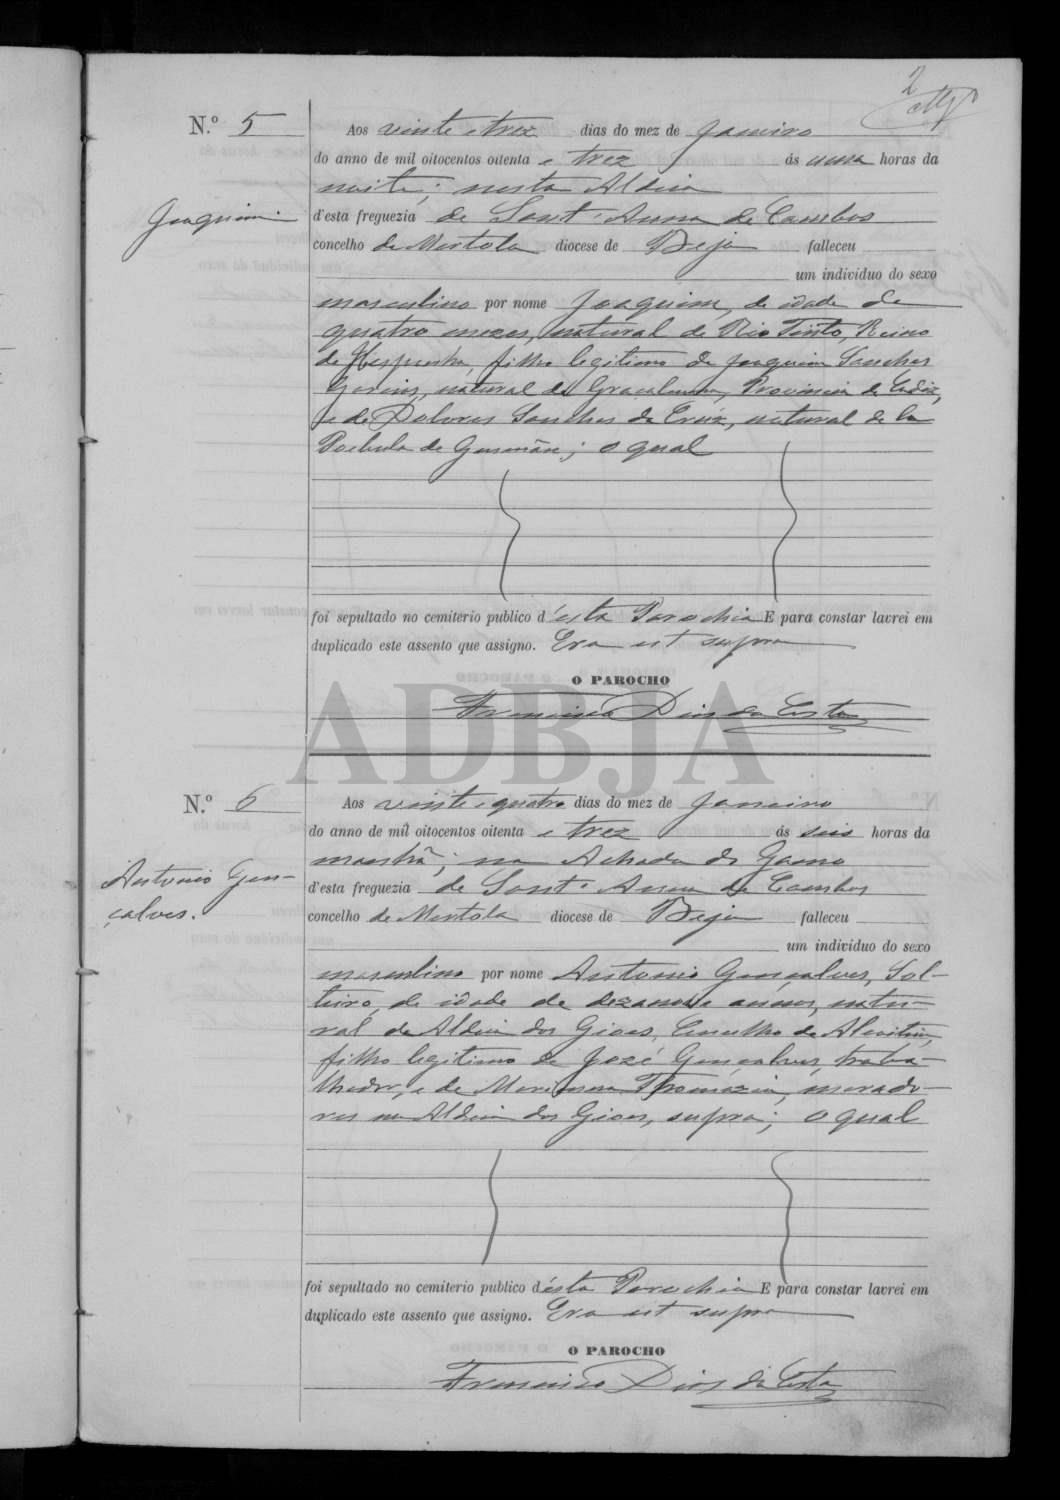 2
N.º 5
Aos vinte e trez dias do mez de Janeiro
do anno de mil oitocentos oitenta e trez ás uma horas da
noite; nesta Aldeia
Joaquim
d'esta freguezia de Sant'Anna de Cambos
concelho de Mertola diocese de Beja falleceu
um individuo do sexo
masculino por nome Joaquim, de idade de
quatro mezes, natural de Rio Tinto, Reino
de Hespanha, filho legitimo de Joaquim Sanches
natural de Provincia de Cadiz,
e de Dolores Sanches da Cruz, natural de la
Puebula de Gusmán; o qual
foi sepultado no cemiterio publico d'ésta Parochia E para constar lavrei em
duplicado este assento que assigno. Era ut supra
O PAROCHO
Francisco Dias da Costa
ADBJA
N.º 6
Aos vinte e quatro dias do mez de Janeiro
do anno de mil oitocentos oitenta e trez ás seis horas da
manhã; na Achada do Gamo
Antonio Gon-
çalves.
d'esta freguezia de Sant'Anna de Cambos
concelho de Mertola diocese de Beja falleceu
um individuo do sexo
masculino por nome Antonio Gonçalves, Sol-
teiro, de idade de dezanove annos, natu-
ral de Aldeia dos Gioes, Concelho de Alcoutim,
filho legitimo de Jozé Gonçalves, traba-
lhador, e de Marianna Thomázia, morado-
res na Aldeia dos Gioes, supra; o qual
foi sepultado no cemiterio publico d'ésta Parochia E para constar lavrei em
duplicado este assento que assigno. Era ut supra
O PAROCHO
Francisco Dias da Costa